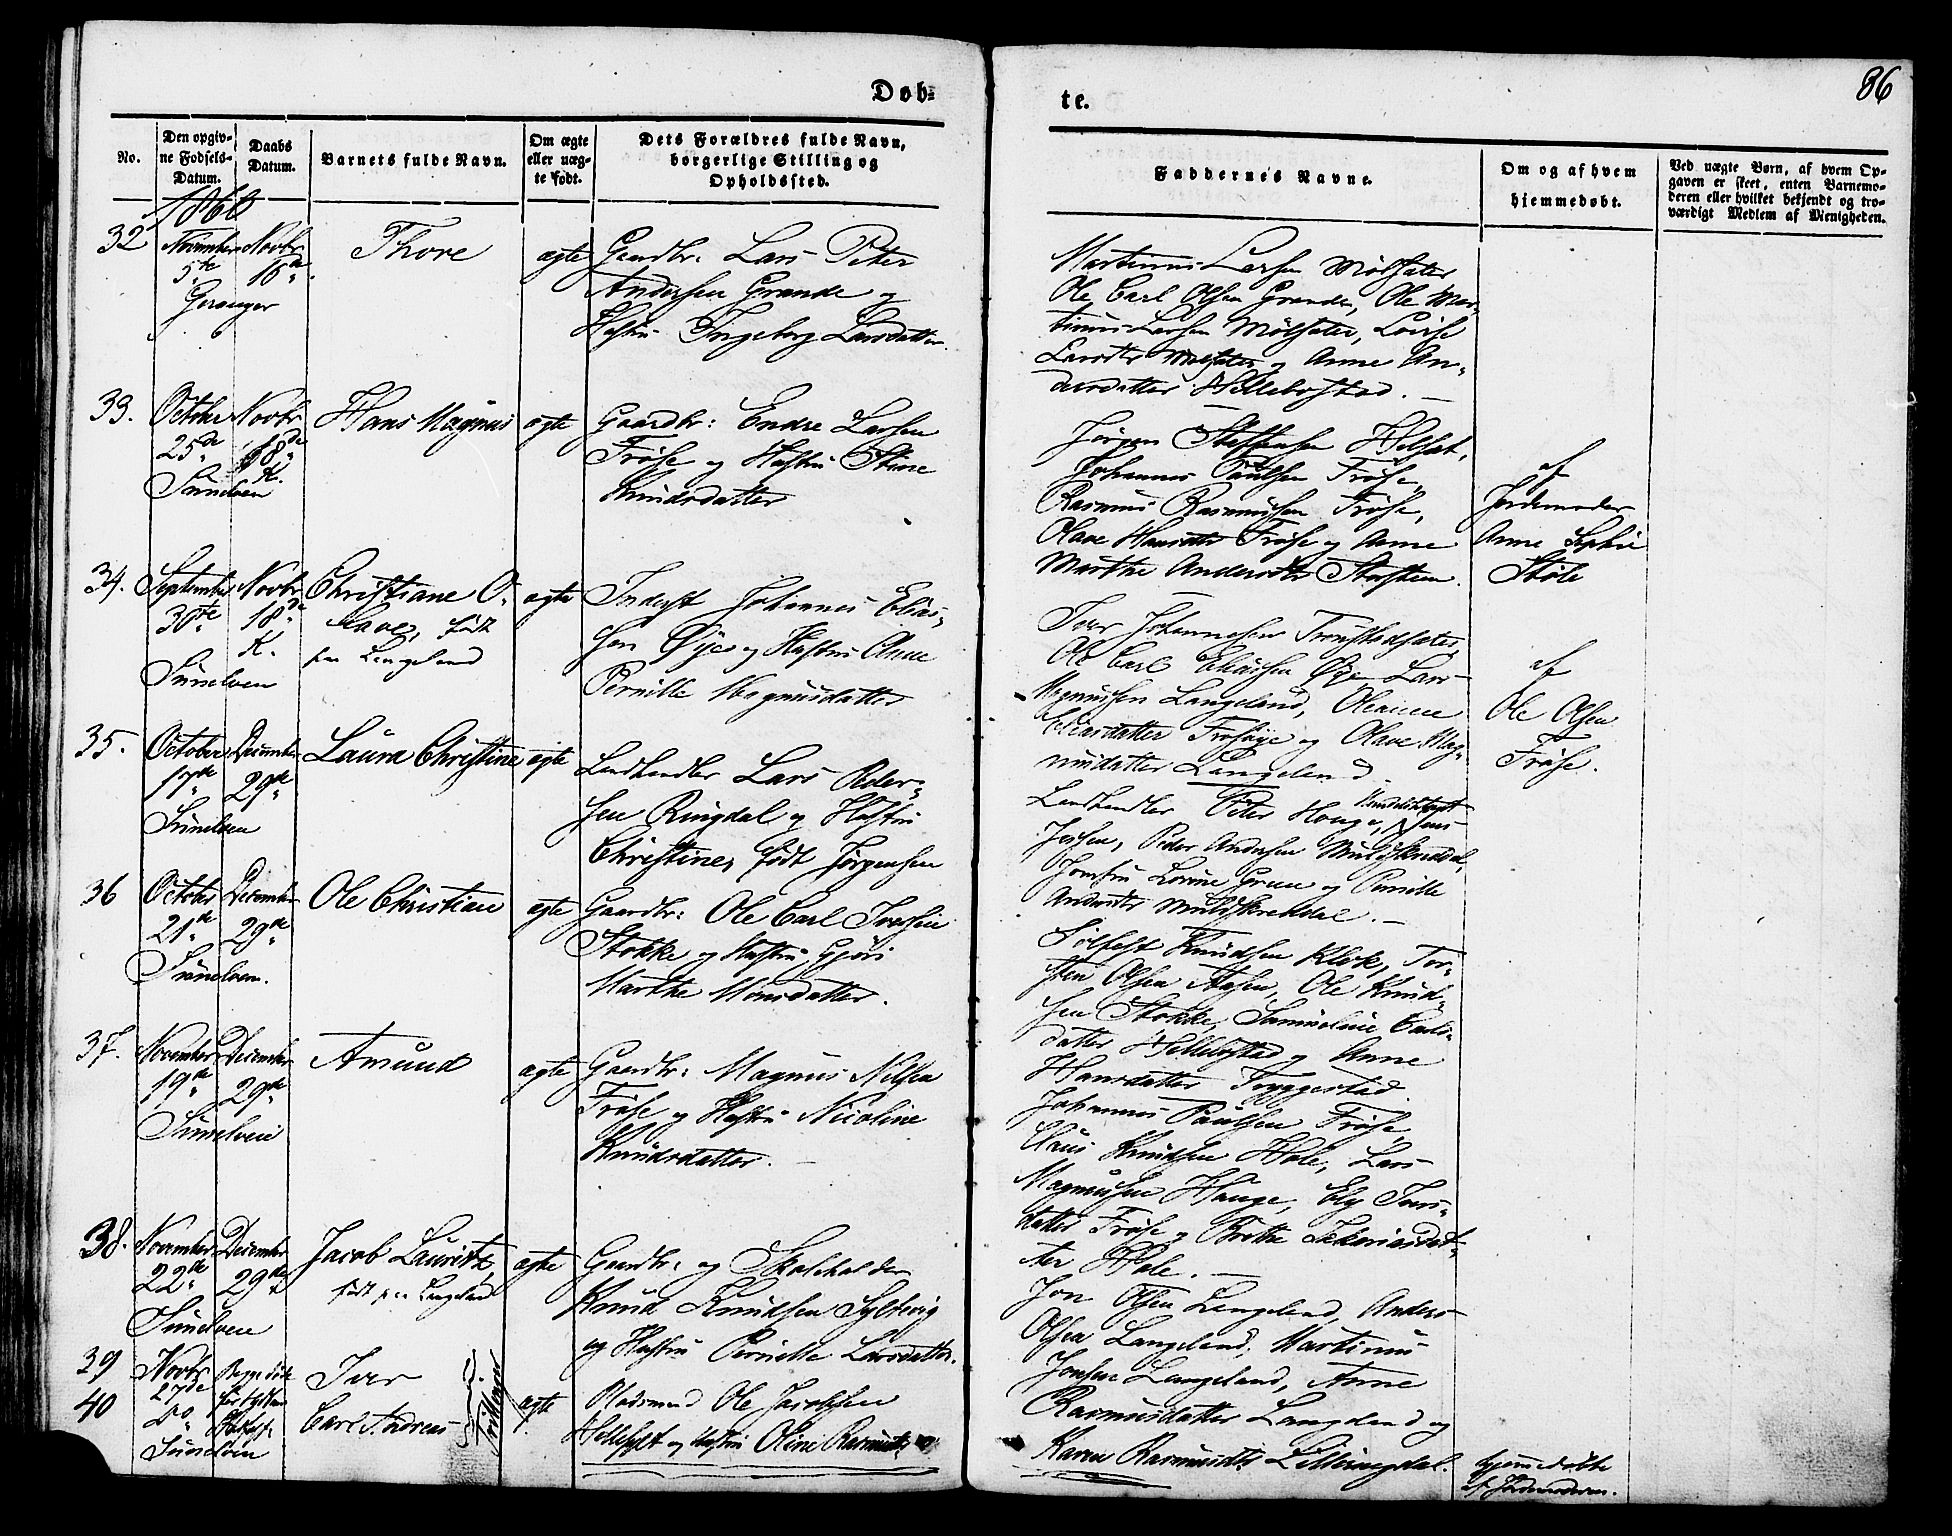 Døb-
te.
86
No.
Den opgiv-
ne Fødsels-
Datum.
Daabs
Datum.
Barnets fulde Navn.
Om ægte
eller uæg-
te født.
Dets Forældres fulde Navn,
borgerlige Stilling og
Opholdssted.
Faddernes Navne.
Om og af hvem
hjemmedøbt.
Ved uægte Børn, af hvem Op-
gaven er skeet, enten Barnemo-
deren eller hvilket bekjendt og tro-
værdigt Medlem af Menigheden.
1866
32
November
5te
Geranger
Novbr
18de
Thore
ægte
Gaardbr: Lars Peter
Andersen Grande og
Hustru Ingeborg Larsdatter.
Martinus Larsen Mölsæter
Ole Carl Olsen Grande, Ole Mar-
tinus Larsen Mölsæter, Lovise
Larsdtr Mölsæter og Anne An-
dersdatter Hellebostad.
33.
October
25de
Sunelven
Novbr
18de
K.
Hans Magnus
ægte
Gaardbr: Endre Larsen
Frøise og Hustru Stine
Knudsdatter
Jørgen Steffensen
Johannes Paulsen Frøise,
Rasmus Rasmussen Frøise,
Olave Hansdtr Frøise og Anne
Marthe Andersdtr
af
Jordemoder
Anne Sophie
Støle
34.
September
30te
Sunelven
Novbr
18de
K.
Christiane O-
lave, født
paa Langeland
ægte
Inderst Johannes Elias-
sen Øye og Hustru Anne
Pernille Magnusdatter
Iver Johannesen
Ole Carl Eliassen Øye Lars
Magnussen Langeland, Oleanne
Eliasdatter og Olave Mag-
nusdatter Langeland
af
Ole Olsen
Frøise.
35.
October
17de
Sunelven
December
29de
Laura Christine
ægte
Landhandler Lars Peder-
sen Ringdal og Hustru
Christine, født Jørgensen
Landhandler Peter Hauge, Jens
Peder Andersen Muldskreddal,
Jomfru Lovine og Pernille
Andersdtr Muldskreddal.
36
October
21de
Sunelven.
December
29de
Ole Christian
ægte
Gaardbr: Ole Carl Iversen
Stokke og Hustru Gjøri
Marthe Monsdatter.
Sølfest Knudsen Klok, Tor-
sten Olsen Aasen, Ole Knud-
sen Stokke, Samueline Carls-
datter Hellebostad og Anne
Hansdatter Tryggestad.
37.
November
19de
Sunelven
December
29de
Amund
ægte
Gaardbr: Magnus Nilsen
Frøise og Hustru Nicoline
Knudsdatter.
Johannes Paulsen Frøise
Claus Knudsen Hole, Lars
Magnussen Hauge, Ely Jens-
datter Frøise og Brithe Zakariasdat-
ter Hole.
38.
November
22de
Sunelven
December
29de
Jacob Lauritz,
født paa Langeland
ægte
Gaardbr: og Skoleholder
Knud Knudsen Syltevig
og Hustru Pernille Larsdatter.
Jon Olsen Langeland, Anders
Olsen Langeland, Martinus
Jonsen Langeland, Anne
Rasmusdatter Langeland og
Karen Rasmusdtr Lilleringdal.
39
40
Novbr
27de
do
Sunelven
Begge døde
Iver
Carl Andreas
Tvillinger
ægte
Pladsmand Ole Jacobsen
Hellesylt og Hustru Oline Rasmusdtr
hjemmedøbte
af Jordemoderen.